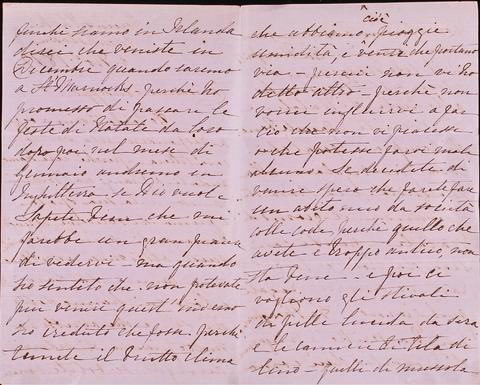 finché siamo in Irlanda
disei che veniste in
Dicembre quando saremo
a St perché ho
promesso di passare le
feste di Natale da loro
dopo poi nel mese di
Gennaio andremo in
Inghilterra se Dio vuole -
Sapete bene che mi
farebbe un gran piacere
di vedervi - ma quando
ho sentito che non potevate
più venire quest inverno
ho creduto che fosse perché
temete il brutto clima
cioè
che abbiamo, pioggie
umidità, e venti che portano
via - percio non vi ho
detto altro - perché non
vorrei influirvi a far
ciò che non vi piacesse
o che potesse farvi male
alcuno. Se decidete di
venire spero che farete fare
un abito nero da società
colle code, perché quello che
avete è troppo antico, non
sta bene - e poi ci
vogliono gli stivali
di pelle lucida da sera
e le camicie di tela di
lino - quelle di mussola